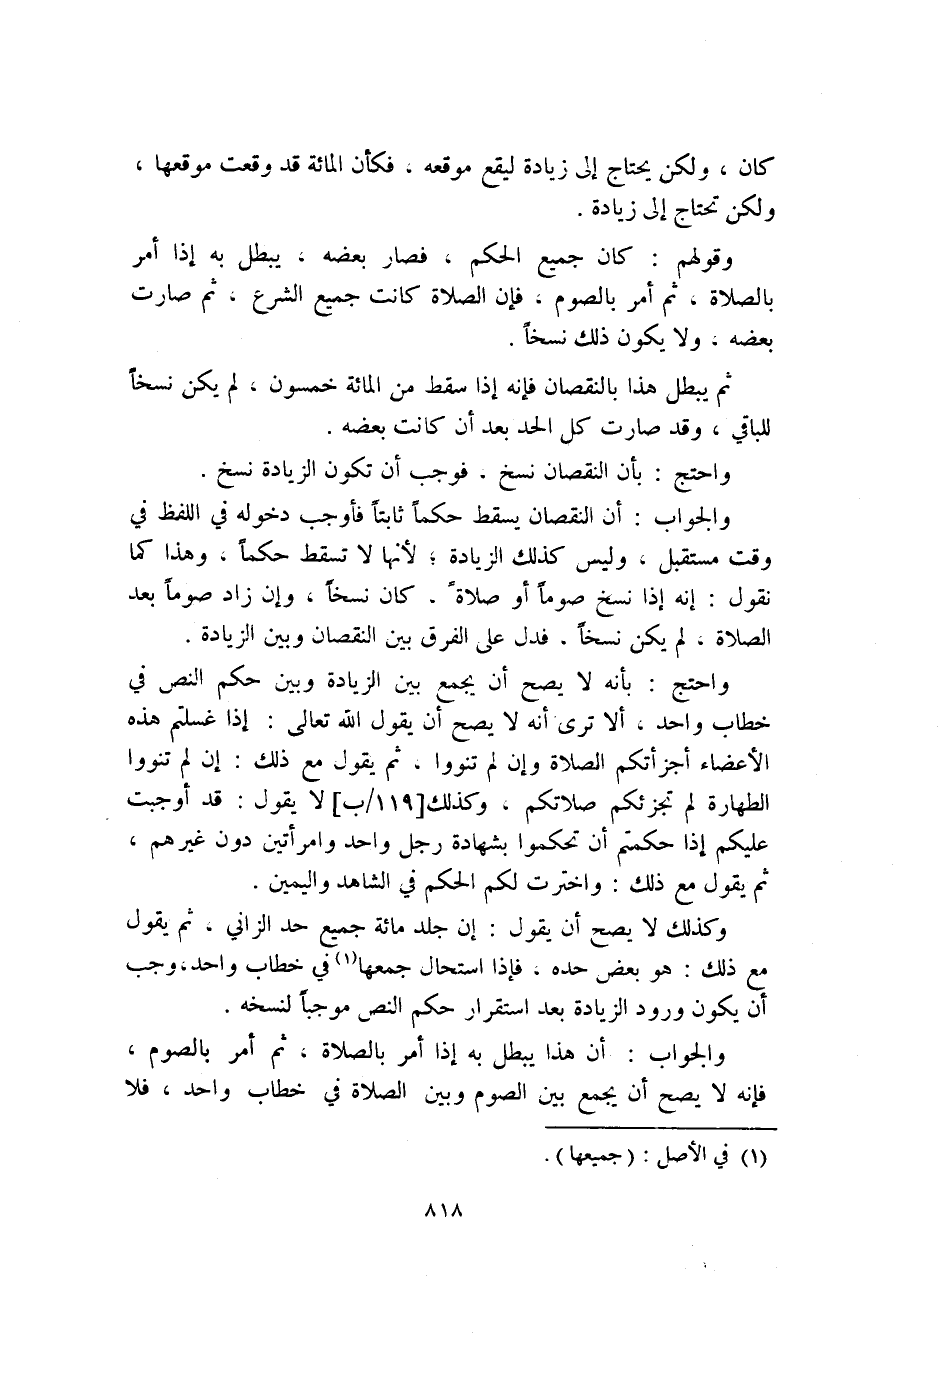 كان ، ولكن يحتاج إلى زيادة ليقع موقعه ، فكأن المائة قد وقعت موقعها ،
ولكن تحتاج إلى زيادة .
وقولهم : كان جميع الحكم ، فصار بعضه ، يبطل به إذا أمر
بالصلاة ، ثم أمر بالصوم ، فإن الصلاة كانت جميع الشرع ، ثم صارت
بعضه ، ولا يكون ذلك نسخاً .
ثم يبطل هذا بالنقصان فإنه إذا سقط من المائة خمسون ، لم يكن نسخاً
للباقي ، وقد صارت كل الحد بعد أن كانت بعضه .
واحتج : بأن النقصان نسخ . فوجب أن تكون الزيادة نسخ .
والجواب : أن النقصان يسقط حكماً ثابتاً فأوجب دخوله في اللفظ في
وقت مستقبل ، وليس كذلك الزيادة ؛ لأنها لا تسقط حكماً ، وهذا كما
نقول : إنه إذا نسخ صوماً أو صلاةً . كان نسخاً ، وإن زاد صوماً بعد
الصلاة ، لم يكن نسخاً . فدل على الفرق بين النقصان وبين الزيادة .
واحتج : بأنه لا يصح أن يجمع بين الزيادة وبين حكم النص في
خطاب واحد ، ألا ترى أنه لا يصح أن يقول الله تعالى : إذا غسلتم هذه
الأعضاء أجزأتكم الصلاة وإن لم تنووا ، ثم يقول مع ذلك : إن لم تنووا
الطهارة لم تجزئكم صلاتكم ، وكذلك[١١٩/ب] لا يقول : قد أوجبت
عليكم إذا حكمتم أن تحكموا بشهادة رجل واحد وامرأتين دون غيرهم ،
ثم يقول مع ذلك : واخترت لكم الحكم في الشاهد واليمين .
وكذلك لا يصح أن يقول : إن جلد مائة جميع حد الزاني ، ثم يقول
مع ذلك : هو بعض حده ، فإذا استحال جمعها(١) في خطاب واحد،وجب
أن يكون ورود الزيادة بعد استقرار حكم النص موجباً لنسخه .
والجواب : أن هذا يبطل به إذا أمر بالصلاة ، ثم أمر بالصوم ،
فإنه لا يصح أن يجمع بين الصوم وبين الصلاة في خطاب واحد ، فلا
(١) في الأصل : (جميعها) .
٨١٨